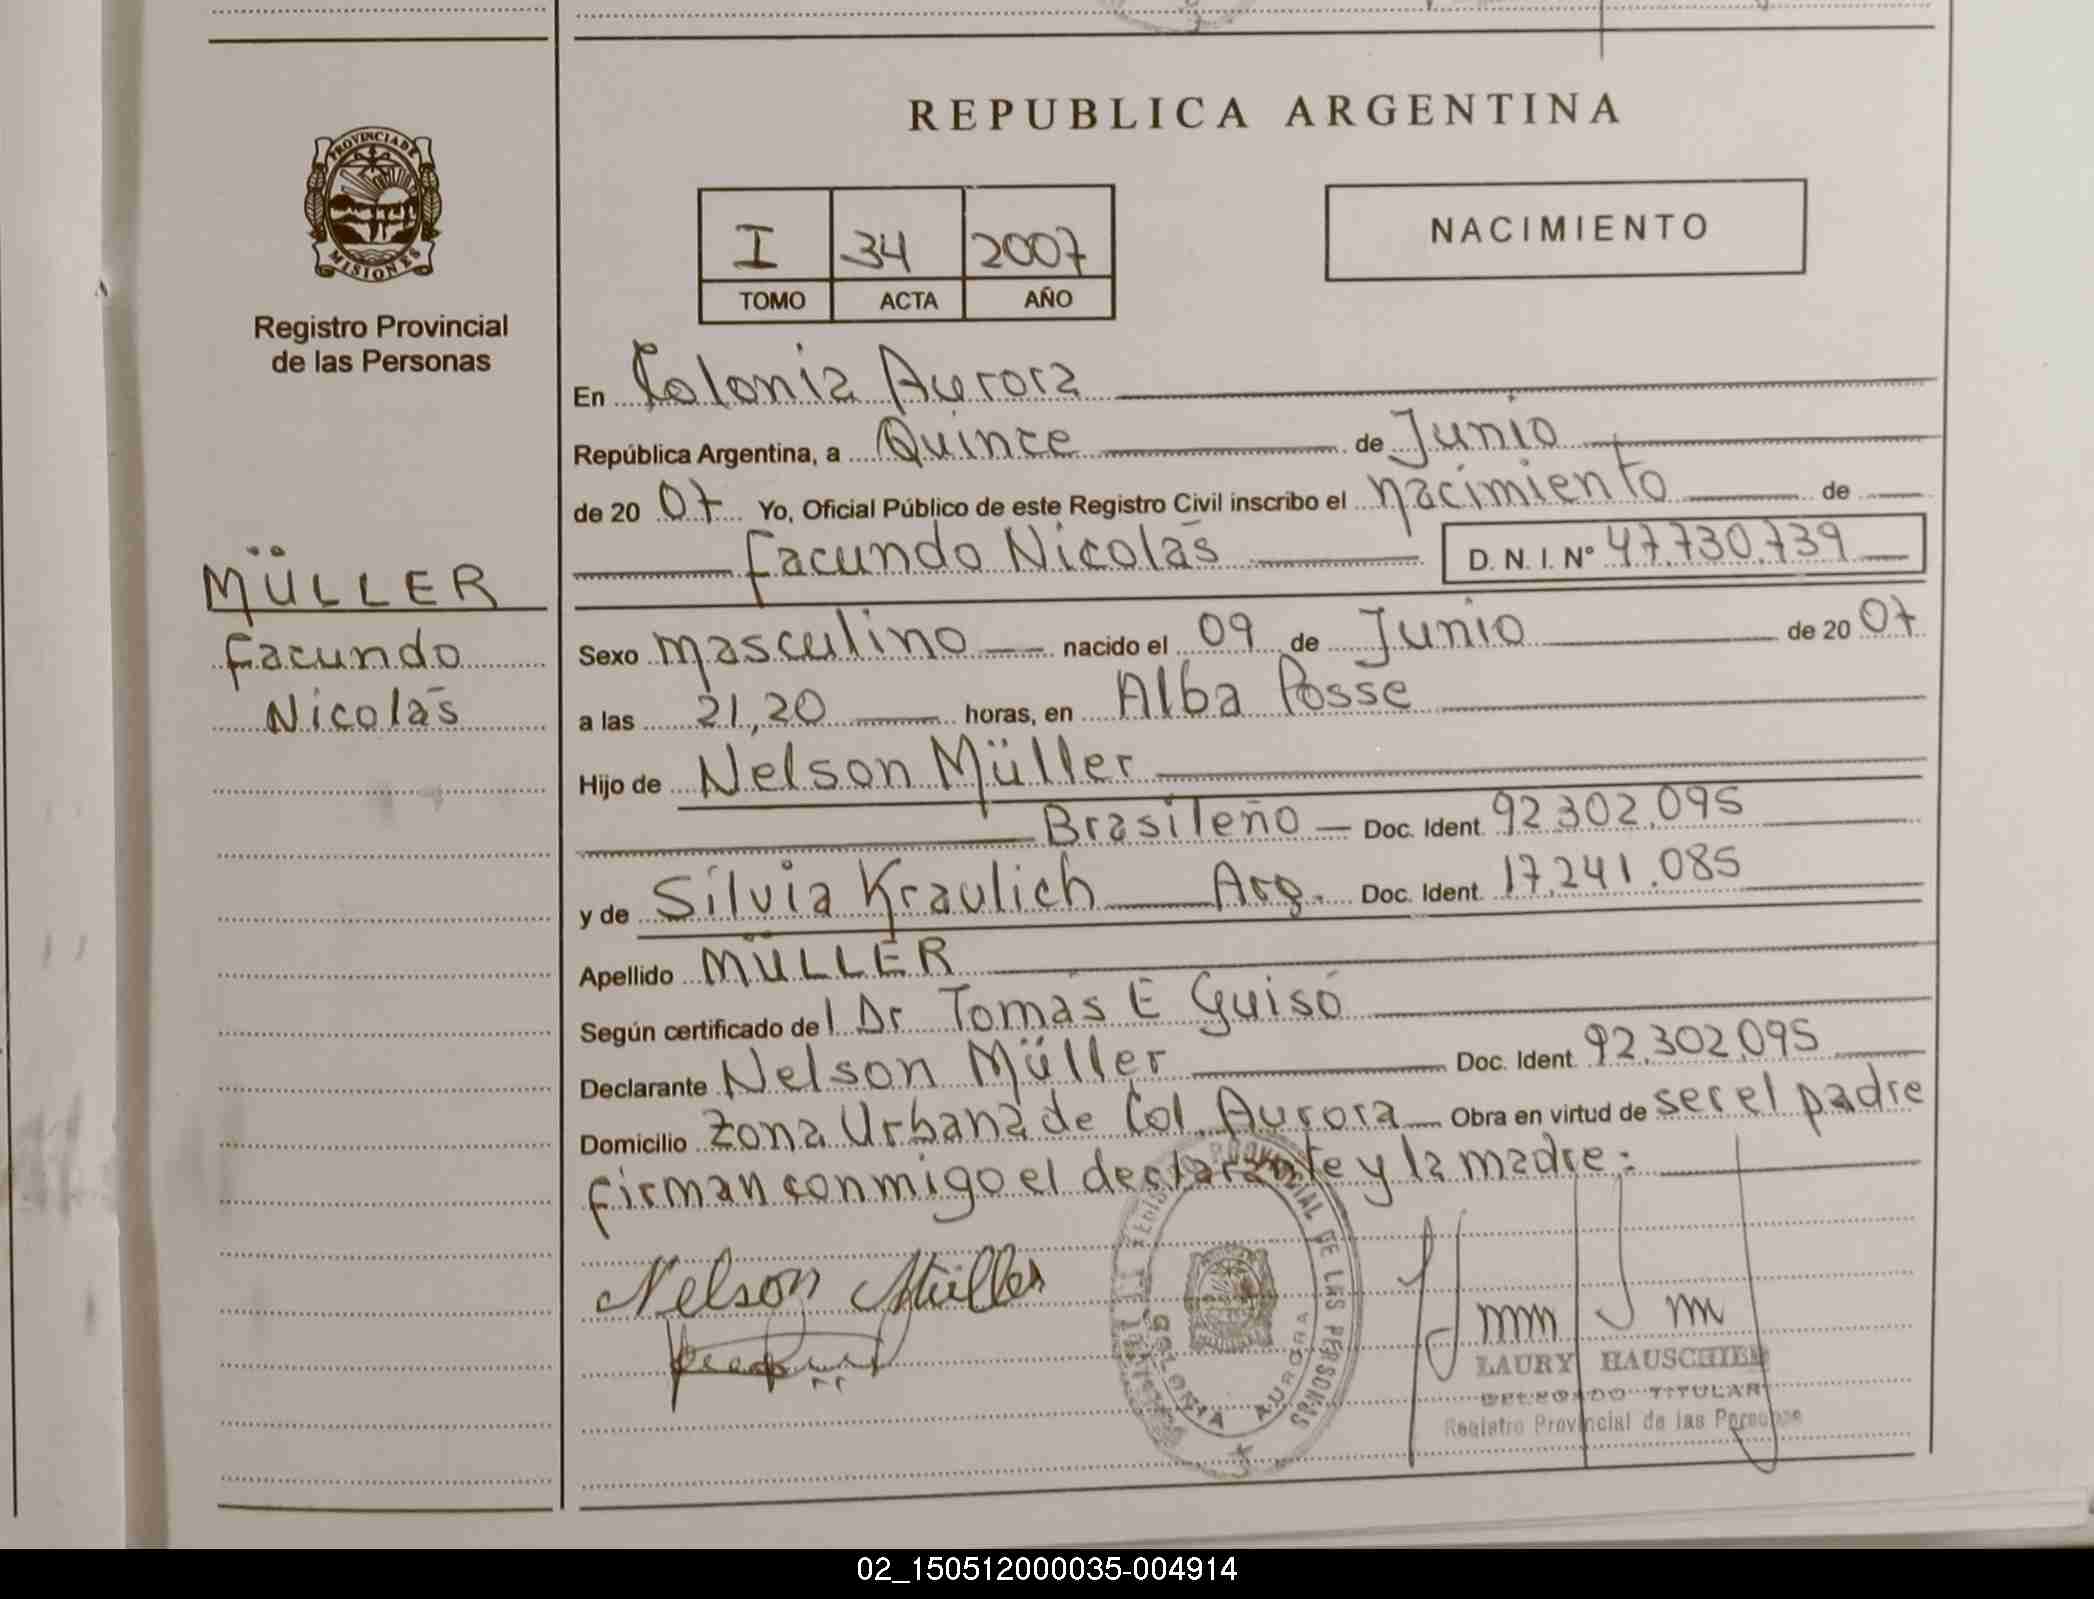 REPUBLICA ARGENTINA
PROVINCIA DE
MISIONES
Registro Provincial
de las Personas
I 34 2007
TOMO ACTA AÑO
NACIMIENTO
En Colonia Aurora
República Argentina, a Quince de Junio
de 20 07 Yo, Oficial Público de este Registro Civil inscribo el nacimiento de
Facundo Nicolás D. N. I. Nº 47.730.739
MÜLLER
Facundo
Nicolás
Sexo masculino nacido el 09 de Junio de 20 07
a las 21,20 horas, en Alba Posse
Hijo de Nelson Müller
Brasileño Doc. Ident. 92.302.095
y de Silvia Kraulich Arg. Doc. Ident. 17.241.085
Apellido MÜLLER
Según certificado del Dr Tomás E Guisó
Declarante Nelson Müller Doc. Ident. 92.302.095
Domicilio Zona Urbana de Col. Aurora Obra en virtud de ser el padre
firman conmigo el declarante y la madre:
Nelson Müller
PROVINCIAL DE LAS PERSONAS
COLONIA AURORA
LAURY HAUSCHIEL
DELEGADO TITULAR
Registro Provincial de las Personas
02_150512000035-004914